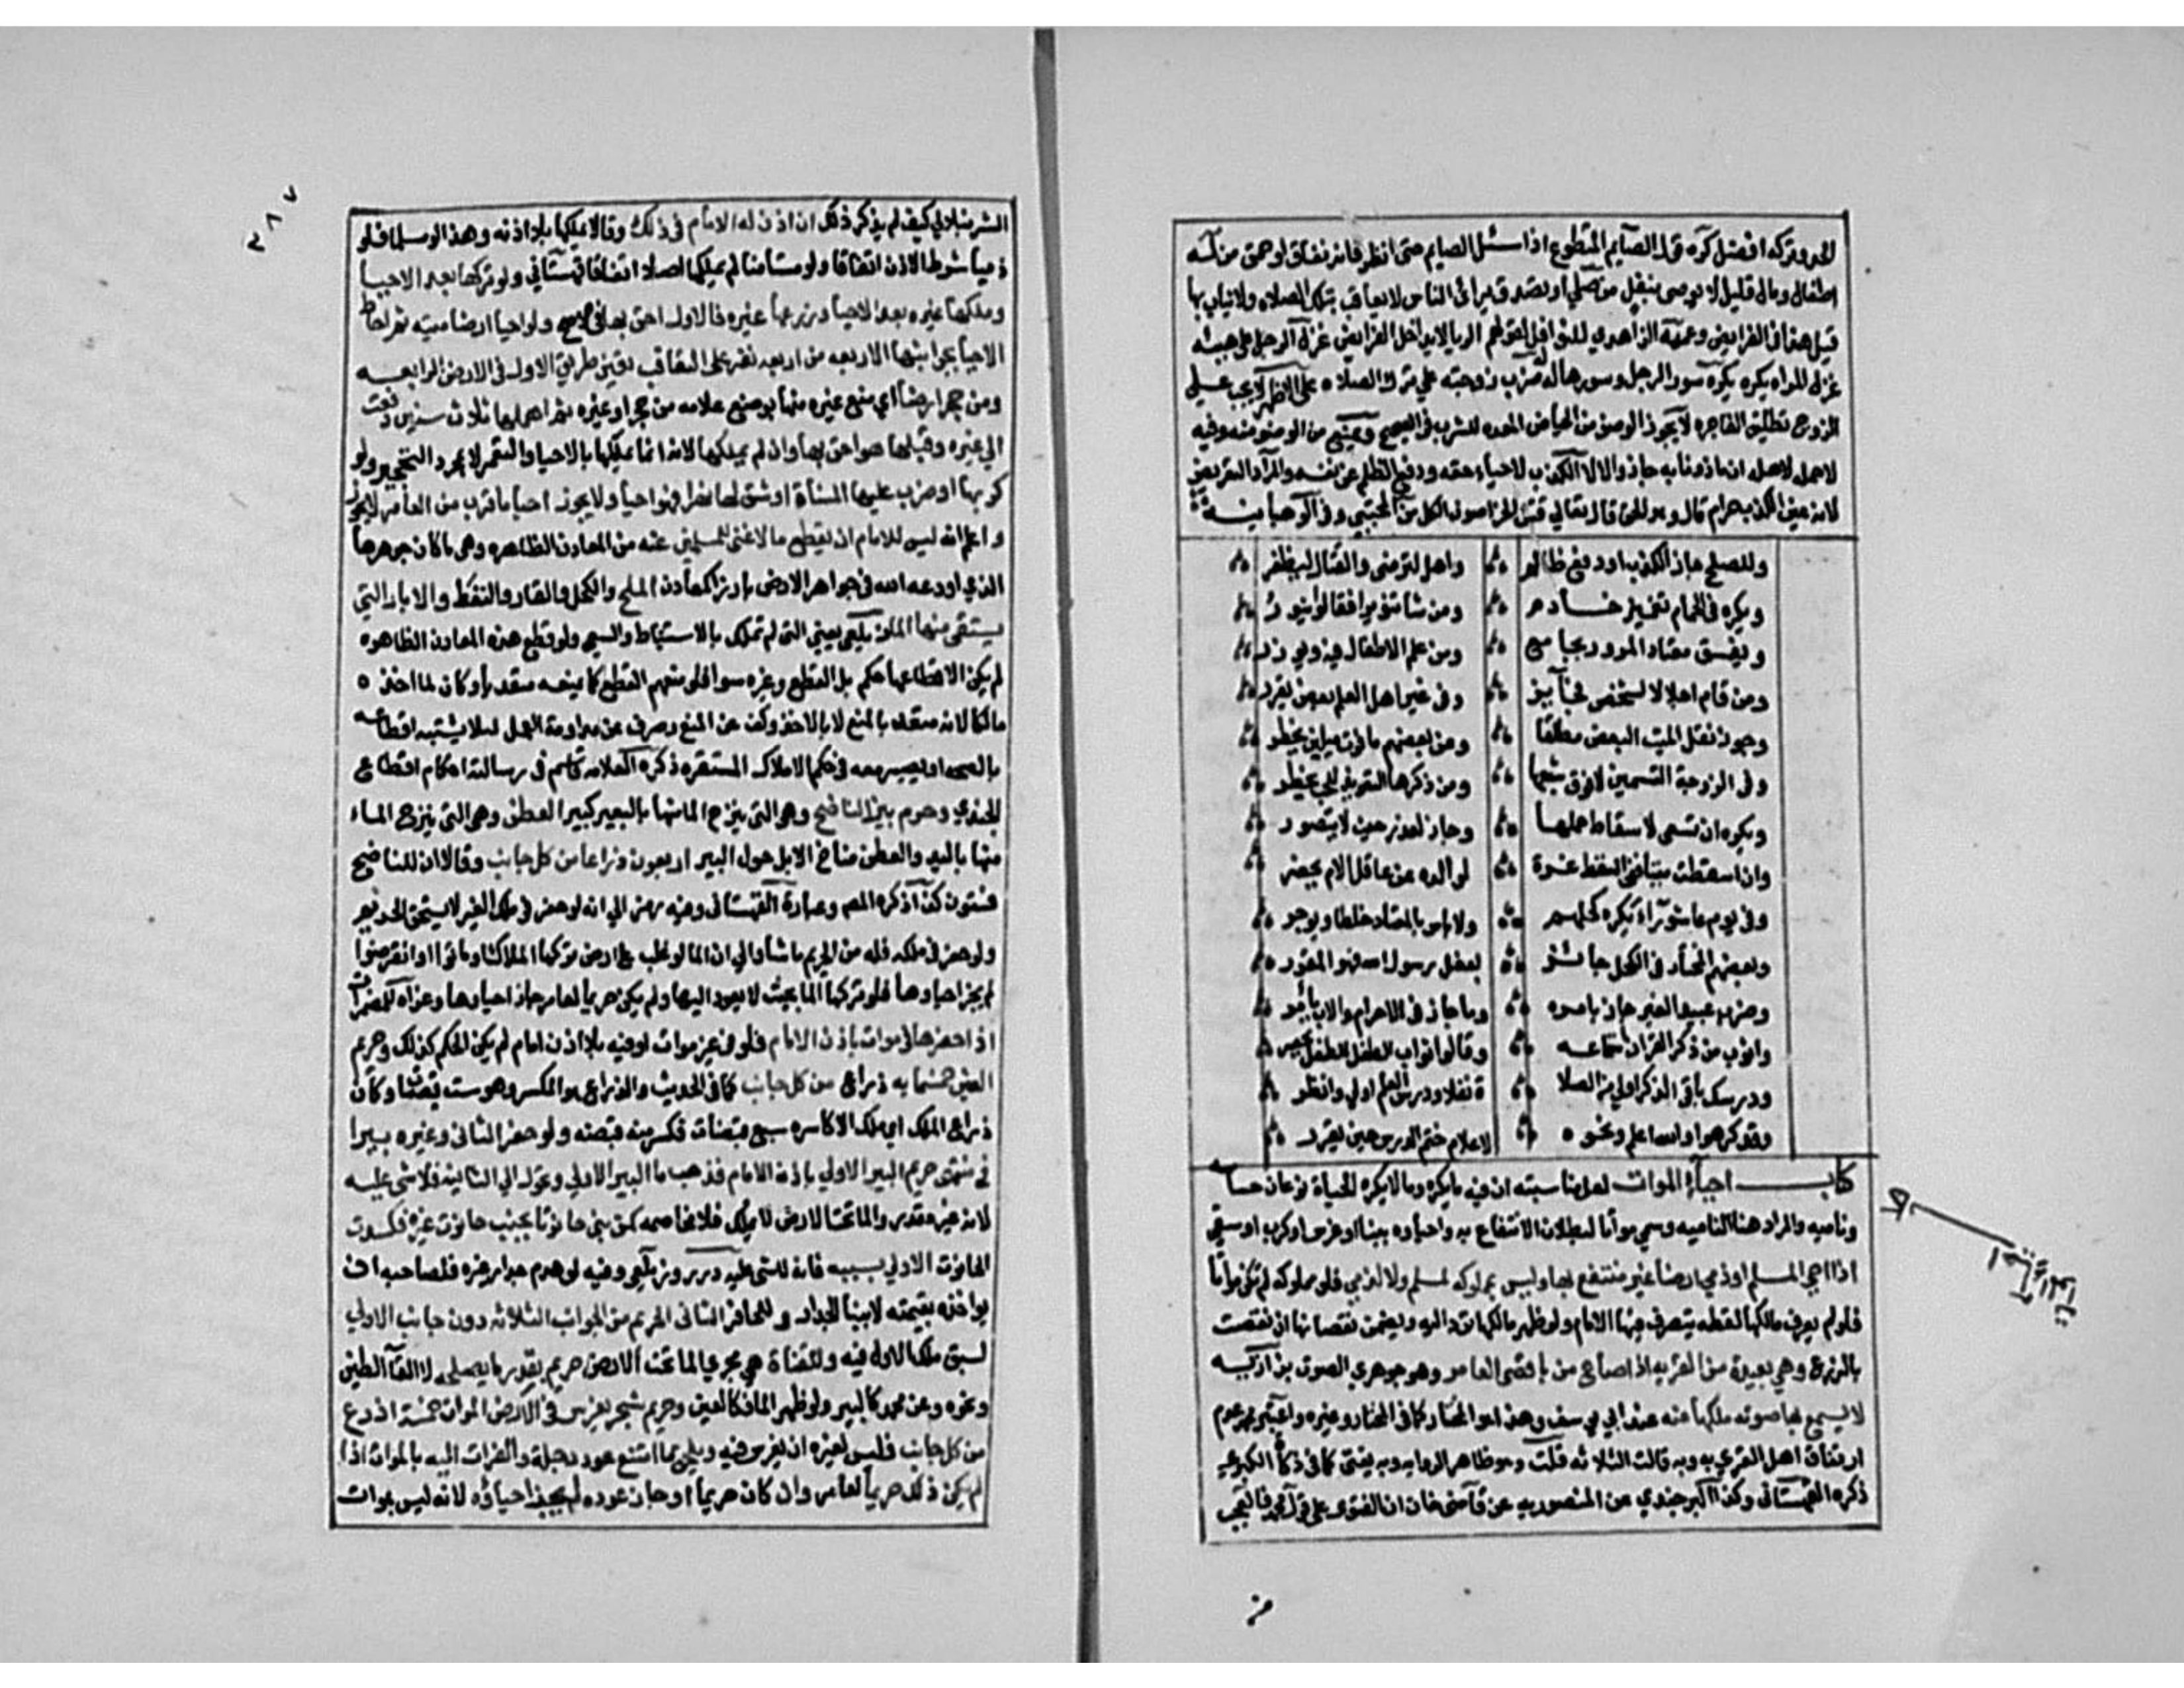 وتركه افضل كره قول الصايم المتطوع اذا سئل اصايم حتى انظر فانه نفاق او حمق من له
اطفال ومال قليل لا يوصى بنفل من صلى او تصدق يرائى الناس لا يعاقب بتلك الصلاه ولا يثاب بها
قيل هذا فى الفرايض وعممه الزاهدي للنوافل لقولهم الريا لا يدخل الفرايض غزل الرجل على هيئه
غزل المراه يكره يكره سور الرجل وسورها له ضرب زوجته علي ترك الصلاه على الاظهر لا يجب علي
الزوج تطليق الفاجره لا يجوز الوضوء من الحياض المعده للشرب فى الصحيح ويمنع من الوضو منه وفيه
لاهله ان ماذونا به جاز والا لا الكذب لاحياء حقه ودفع الظلم عن نفسه والمراد التعريض
لانه عين الكذب حرام قال وهو الحق قال تعالي قتل الخراصون الكل من المجتبي وفى الوهبانيه
وللصلح جاز الكذب او دفع ظالم واهل لترضى والقتال ليظفر
ويكره فى الحمام تغميز خادم ومن شا تنويرا فقالوا ينور
ويفسق معتاد المرور بجامع ومن علم الاطفال فيه ويوزر
ومن قام اجلالا لشخص فجايز وفى غير اهل العلم بعض يقرر
وجوز نقل الميت البعض مطلقا وعن بعضهم ما فوق ميلين يحظر
وفى الزوجة التسمين لا فوق شبعها ومن ذكرها التعويذ للحب تحظر
ويكره ان تسعى لاسقاط حملها وجاز لعذر حيث لا يتصور
وان اسقطت ميتا فى السقط غرة لوالده من عاقل الام تحضر
وفى يوم عاشوراء يكره كحلهم ولا باس بالمعتاد خلطا ويوجر
وبعضهم المختار فى الكحل جائز لفعل رسول الله فهو المقرر
وضرب عبيد الغير جاز بامره وما جاز فى الاحرار والاب يامر
واثوب من ذكر القران استماعه وقالوا ثواب الطفل للطفل يحصر
ودرسك باقى الذكر اولى من الصلاة نفلا ودرس العلم اولى وانظر
وقد كرهوا والله اعلم ونحوه لاعلام ختم الدرس حين يقرر
كتاب احياء الموات لعل مناسبته ان فيه ما يكره وما لا يكره الحياة نوعان حساسه
وناميه والمراد هنا الناميه وسمي مواتا لبطلان الانتفاع به واحياوه ببنا او غرس او كرب او سقي
اذا احيى المسلم او ذمي ارضا غير منتفع بها وليس بمملوكه لمسلم ولا لذمي فلو مملوكه لم تكن مواتا
فلو لم يعرف مالكها لقطه يتصرف فيها الامام ولو ظهر مالكها ترد اليه ويضمن نقصانها ان نقصت
بالزرع وهي بعيدة من القريه اذا صاح من باقصى العامر وهو جهوري الصوت بزازيه
لا يسمع بها صوته ملكها عند ابي يوسف وهذا هو المختار كما فى المختار وغيره واعتبر محمد عدم
ارتفاق اهل القري به وبه قالت الثلاثه قلت وهو ظاهر الروايه وبه يفتى كما فى زكاة الكبرى
ذكره القهستانى وكذا البرجندي عن المنصوريه عن قاضى خان ان الفتوى على قول محمد فالعجب
من
احياء
٣٨٧
الشرنبلالي كيف لم يذكر ذلك ان اذن له الامام فى ذلك وقالا يملكها بلا اذنه وهذا لو مسلما فلو
ذميا شرط الاذن اتفاقا ولو مستامنا لم يملكها اصلا اتفاقا قهستانى ولو تركها بعد الاحيا
وزرعها غيره فالاول احق بها فى الاصح ولو احيا ارضا ميته ثم احاط
الاحيا بجوانبها الاربعه من اربعه نفر على التعاقب تعين طريق الاول فى الارض الرابعه
ومن حجر ارضا اي منع غيره منها بوضع علامه من حجر او غيره ثم اهملها ثلاث سنين دفعت
الي غيره وقبلها هو احق بها وان لم يملكها لانه انما يملكها بالاحيا والتعمير لا بمجرد التحجير ولو
كربها او ضرب عليها المسناة او شق لها نهرا فهو احيا ولا يجوز احيا ما قرب من العامر
واعلم انه ليس للامام ان يقطع ما لا غنى للمسلمين عنه من المعادن الظاهره وهى ما كان جوهرها
الذي اودعه الله فى جواهر الارض بارزا كمعادن الملح والكحل والقار والنفط والابار التى
يستقى منها الماء زيلعى يعني التى لم تملك بالاستنباط والسعى ولو قطع هذه المعادن الظاهره
لم يكن لاقطاعها حكم بل المقطع وغيره سوا فلو منعهم المقطع كان بمنعه متعديا وكان لما اخذه
مالكا لانه متعد بالمنع لا بالاخذ وكف عن المنع وصرف عن مداومة العمل ليلا يشتبه اقطاعه
بالصحه او يصير معه فى حكم الاملاك المستقره ذكره العلامه قاسم فى رسالته احكام اقطاع
الجندي وحريم بير الناضح وهى التى ينزح الما منها بالبعير كبير العطن وهى التى ينزح الماء
منها باليد والعطن مناخ الابل حول البير اربعون ذراعا من كل جانب وقالا ان للناضح
فستون كذا ذكره المص وعبارة القهستانى وفيه رمز الي انه لو حفر فى ملك الغير لا يستحق الحريم
ولو حفر فى ملكه فله من الحريم ما شا والي ان الما لو غلب على ارض تركها الملاك او ماتوا او انقرضوا
لم يجز احياوها فلو تركها الما بحيث لا يعود اليها ولم يكن حريما لعامر جاز احياوها وعزاه للمضمرات
اذا حفرها فى موات باذن الامام فلو فى غير موات او فيه بلا اذن امام لم يكن الحكم كذلك وحريم
العين خمسمايه ذراع من كل جانب كما فى الحديث والذراع هو المكسر وهو ست قبضات وكان
ذراع الملك اي ملك الاكاسره سبع قبضات فكسر منه قبضه ولو حفر الثانى وغيره بيرا
فى منتهى حريم البير الاولي باذن الامام فذهب ما البير الاولي وتحول الى الثانيه فلا شى عليه
لانه غير متعد والما تحت الارض لا يملك فلا مخاصمه كمن بنى حانوتا بجنب حانوت غيره فكسدت
الحانوت الاولى بسببه فانه لا شى عليه درر وزيلعى وفيه لو هدم جدار غيره فلصاحبه ان
يواخذه بقيمته لا ببنا الجدار وللحافر الثانى الحريم من الجوانب الثلاثه دون جانب الاولي
لسبق ملك الاول فيه وللقناة هى مجري الما تحت الارض حريم بقدر ما يصلحه لالقا الطين
ونحوه وعن محمد كالبير ولو ظهر الما فكالعين وحريم شجر يغرس فى الارض الموات خمسة اذرع
من كل جانب فليس لغيره ان يغرس فيه ويلحق بما امتنع عود دجله والفرات اليه بالموات اذا
لم يكن ذلك حريما لعامر وان كان حريما او جاز عوده لم يجز احياؤه لانه ليس بموات